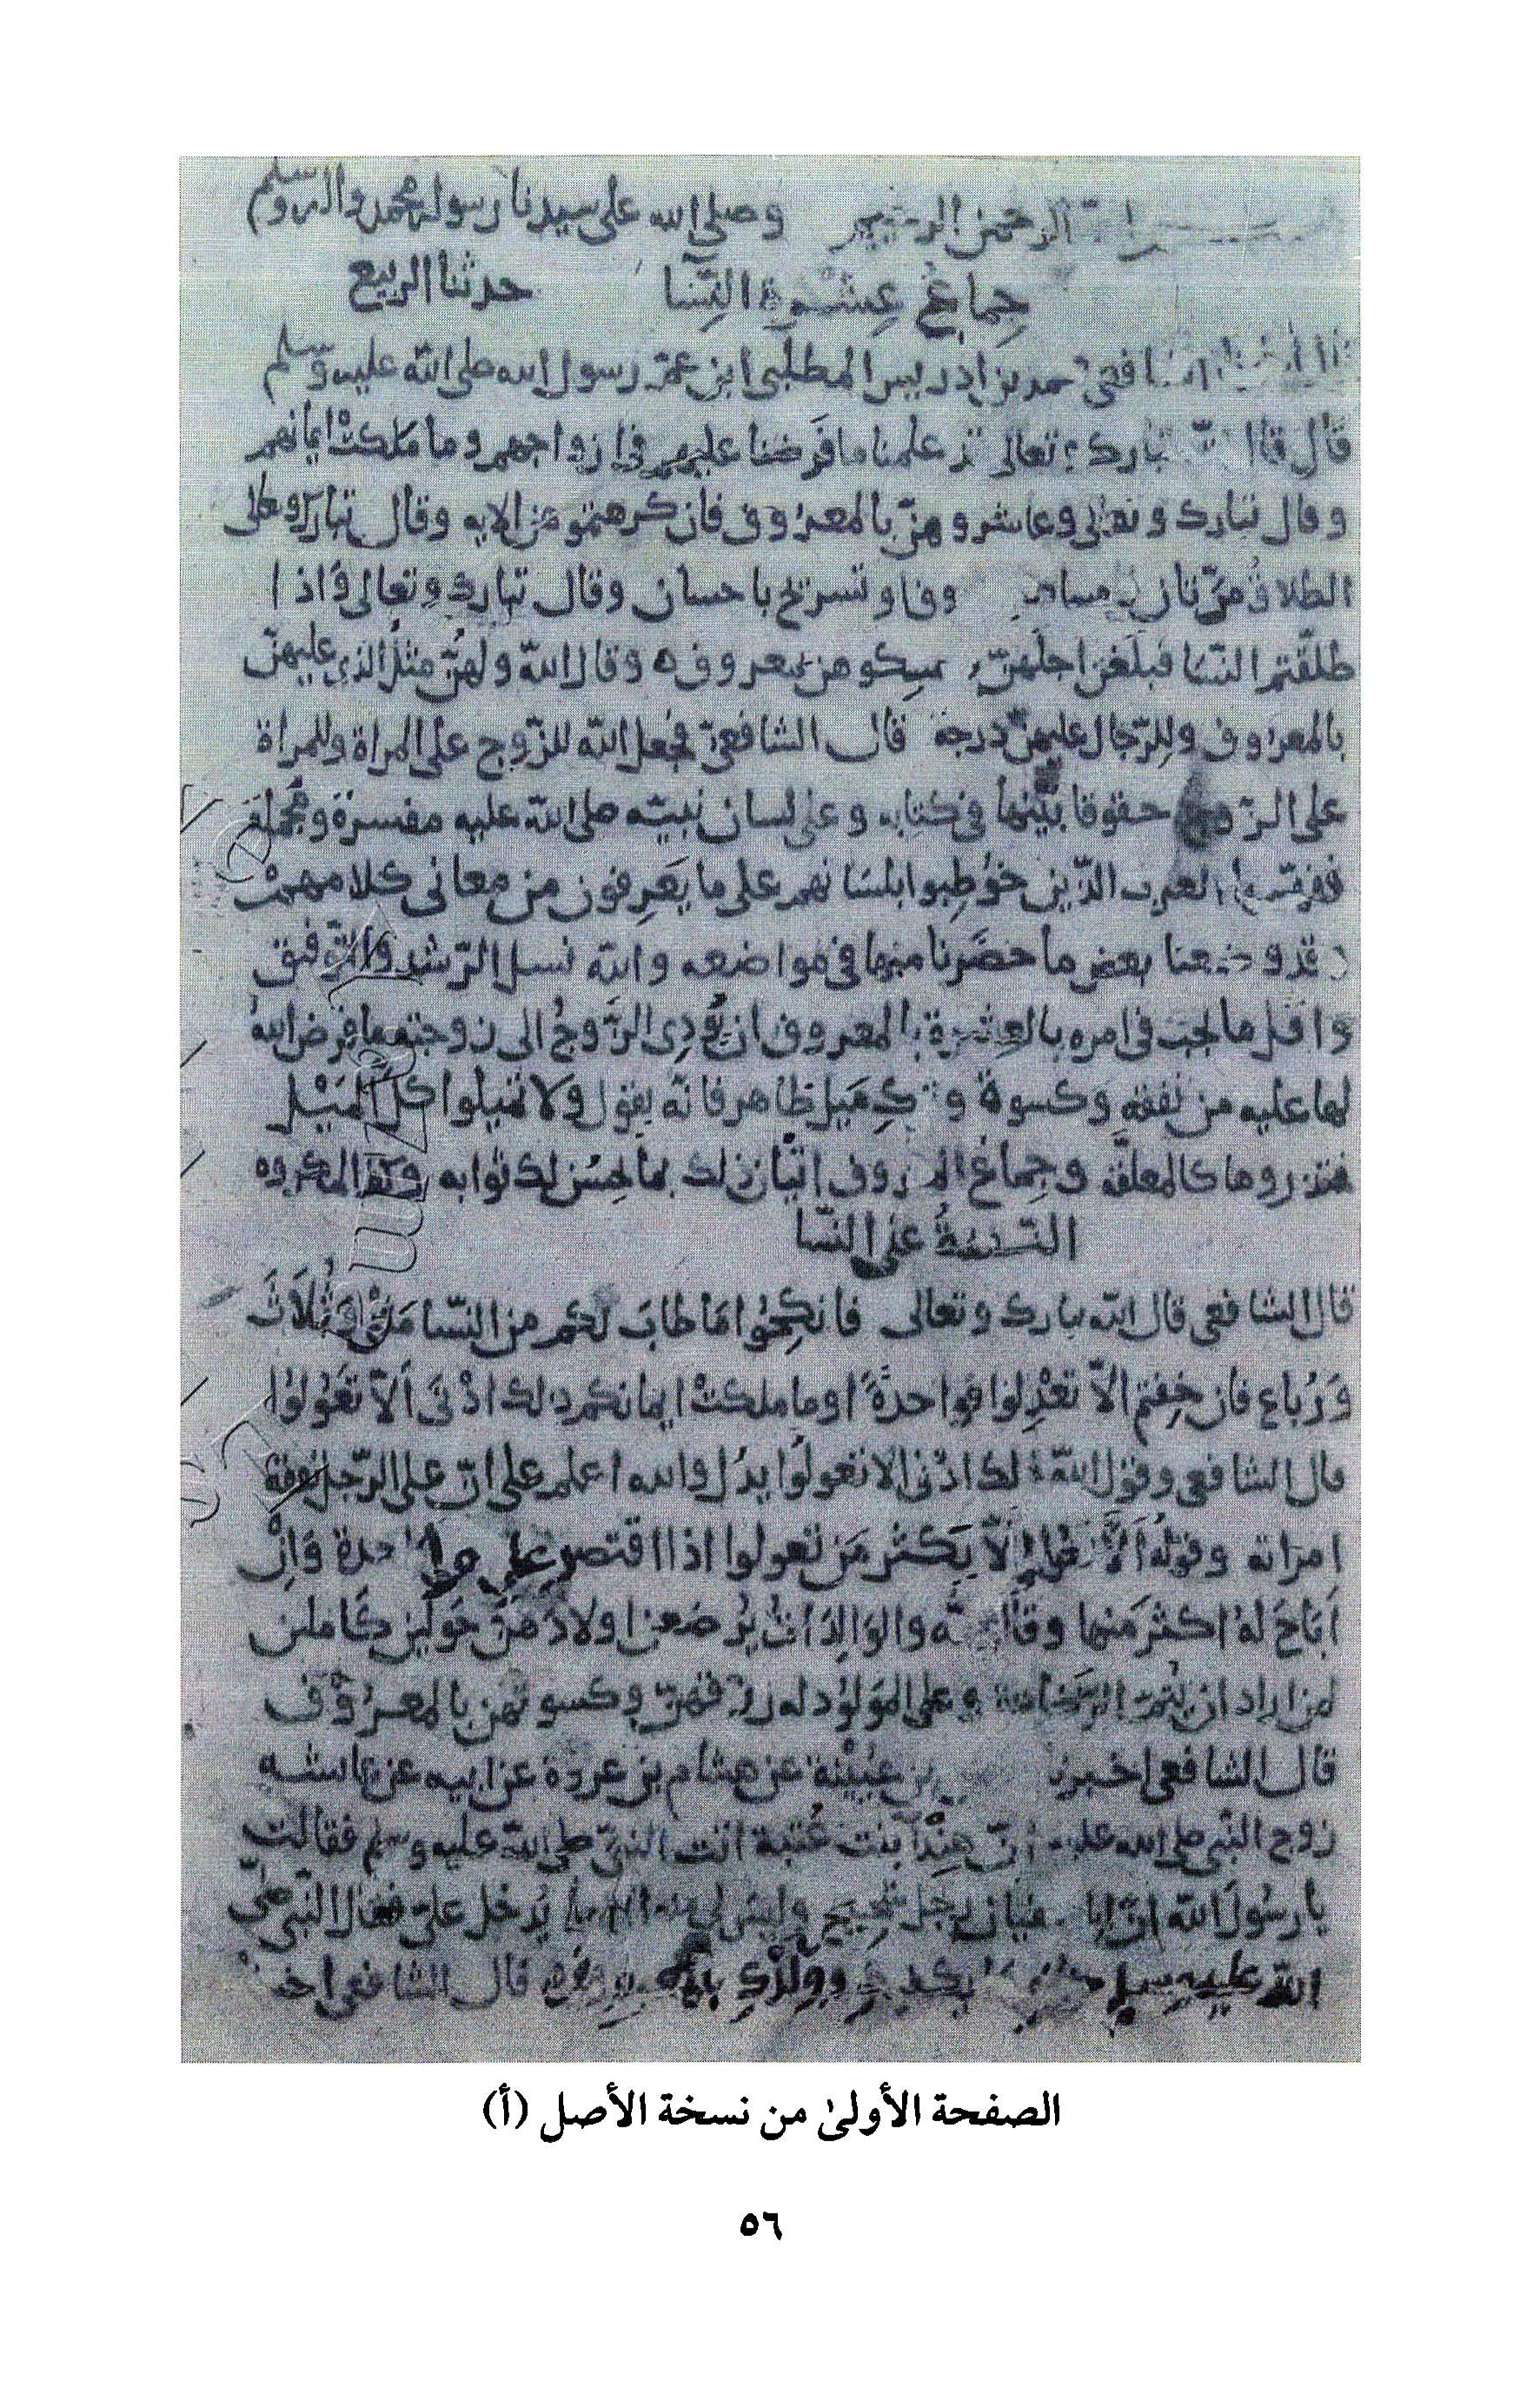 الرحمن الرحيم وصلى الله على سيدنا رسوله محمد واله وسلم
جماع عشرة النسا حدثنا الربيع
الشافعي محمد بن ادريس المطلبي ابن عم رسول الله صلى الله عليه وسلم
قال قال الله تبارك وتعالى قد علمنا ما فرضنا عليهم في ازواجهم وما ملكت ايمانهم
وقال تبارك وتعالى وعاشروهن بالمعروف فان كرهتموهن الايه وقال تبارك وتعالى
الطلاق مرتان وف او تسريح باحسان وقال تبارك وتعالى واذا
طلقتم النسا فبلغن اجلهن مسكوهن بمعروف ه وقال الله ولهن مثل الذي عليهن
بالمعروف وللرجال عليهن درجة قال الشافعي فجعل الله للزوج على المراة وللمراة
على الزوج حقوقا بينها في كتابه وعلى لسان نبيه صلى الله عليه مفسرة ومجملة
ففهمها العرب الذين خوطبوا بلسانهم على ما يعرفون من معاني كلامهم
وقد وضعنا بعض ما حضرنا منها في مواضعه والله نسل الرشد والتوفيق
واقل ما يجب في امره بالعشرة بالمعروف ان يؤدي الزوج الى زوجته ما فرض الله
لها عليه من نفقة وكسوة وترك ميل ظاهر فانه يقول ولا تميلوا كل الميل
فتذروها كالمعلقة وجماع المعروف اتيان ذلك بما يحسن لك ثوابه وكف المكروه
النفقة على النسا
قال الشافعي قال الله تبارك وتعالى فانكحوا ما طاب لكم من النسا مثنى وثلاث
ورباع فان خفتم الا تعدلوا فواحدة او ما ملكت ايمانكم ذلك ادنى الا تعولوا
قال الشافعي وقول الله ذلك ادنى الا تعولوا يدل والله اعلم على ان على الرجل نفقة
امراته وقوله الا تعولوا الا يكثر من تعولوا اذا اقتصر على واحدة وان
اباح له اكثر منها وقال الله والوالدات يرضعن اولادهن حولين كاملين
لمن اراد ان يتم الرضاعة وعلى المولود له رزقهن وكسوتهن بالمعروف
قال الشافعي اخبرنا بن عيينة عن هشام بن عروة عن ابيه عن عائشه
زوج النبي صلى الله عليه ان هندا بنت عتبة اتت النبي صلى الله عليه وسلم فقالت
يا رسول الله ان ابا سفيان رجل شحيح وليس لي يدخل علي فقال النبي صلى
الله عليه وسلم خذي ما يكفيك وولدك بالمعروف قال الشافعي
الصفحة الأولىٰ من نسخة الأصل (أ)
٥٦